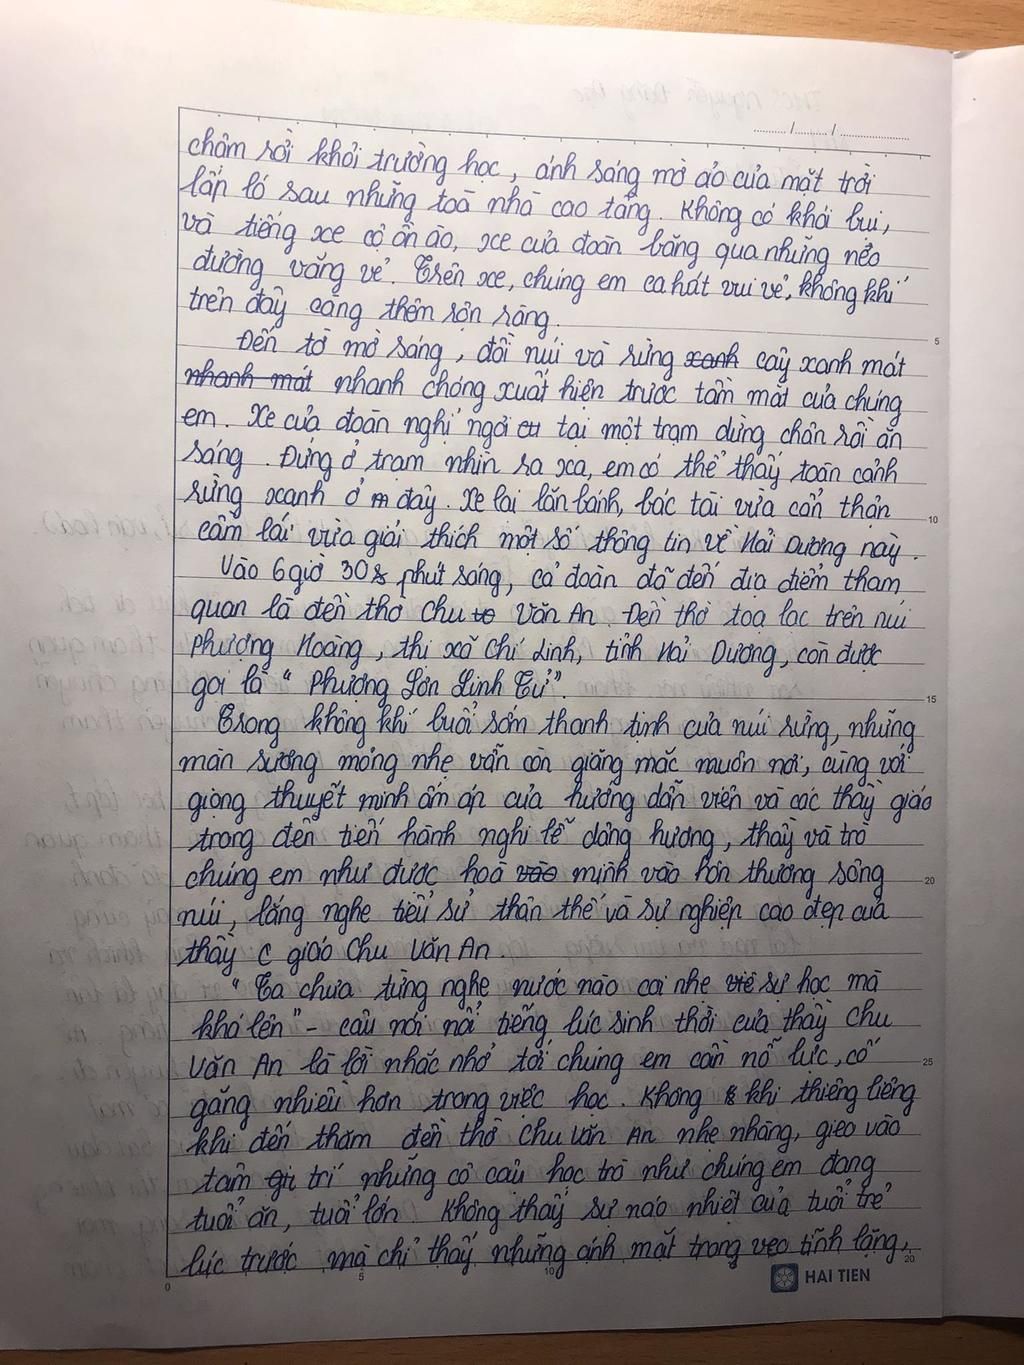 chậm rời khỏi trường học, ánh sáng mờ ảo của mặt trời
lấp ló sau những toà nhà cao tầng. Không có khói bụi,
và tiếng xe cộ ồn ào, xe của đoàn băng qua những nẻo
đường vắng vẻ. Trên xe, chúng em ca hát vui vẻ, không khí
trên đây càng thêm rộn ràng.
Đến tờ mờ sáng, đồi núi và rừng xanh cây xanh mát
nhanh mát nhanh chóng xuất hiện trước tầm mắt của chúng
em. Xe của đoàn nghỉ ngơi cu tại một trạm dừng chân rồi ăn
sáng. Đứng ở trạm nhìn ra xa, em có thể thấy toàn cảnh
rừng xanh ở m đây. Xe lại lăn bánh, bác tài vừa cẩn thận
cầm lái vừa giải thích một số thông tin về Hải Dương này.
Vào 6 giờ 30 phút sáng, cả đoàn đã đến địa điểm tham
quan là đền thờ Chu to Văn An. Đền thờ toạ lạc trên núi
Phượng Hoàng, thị xã Chí Linh, tỉnh Hải Dương, còn được
gọi là "Phượng Sơn Linh Từ".
Trong không khí buổi sớm thanh tịnh của núi rừng, những
màn sương mỏng nhẹ vẫn còn giăng mắc muôn nơi, cùng với
giọng thuyết minh ấm áp của hướng dẫn viên và các thầy giáo
trong đền tiến hành nghi lễ dâng hương, thầy và trò
chúng em như được hoà vào mình vào hồn thương sông
núi, lắng nghe tiểu sử thân thế và sự nghiệp cao đẹp của
thầy c giáo Chu Văn An.
"Ta chưa từng nghe nước nào coi nhẹ việ sự học mà
khá lên" - câu nói nổi tiếng lúc sinh thời của thầy Chu
Văn An là lời nhắc nhở tới chúng em cần nỗ lực, cố
gắng nhiều hơn trong việc học. Không k khí thiêng liêng
khi đến thăm đền thờ Chu Văn An nhẹ nhàng, gieo vào
tâm gi trí những cô cậu học trò như chúng em đang
tuổi ăn, tuổi lớn. Không thấy sự náo nhiệt của tuổi trẻ
lúc trước mà chỉ thấy những ánh mắt trong veo tĩnh lặng,
5
10
15
20
25
0
5
10
20
HAI TIEN